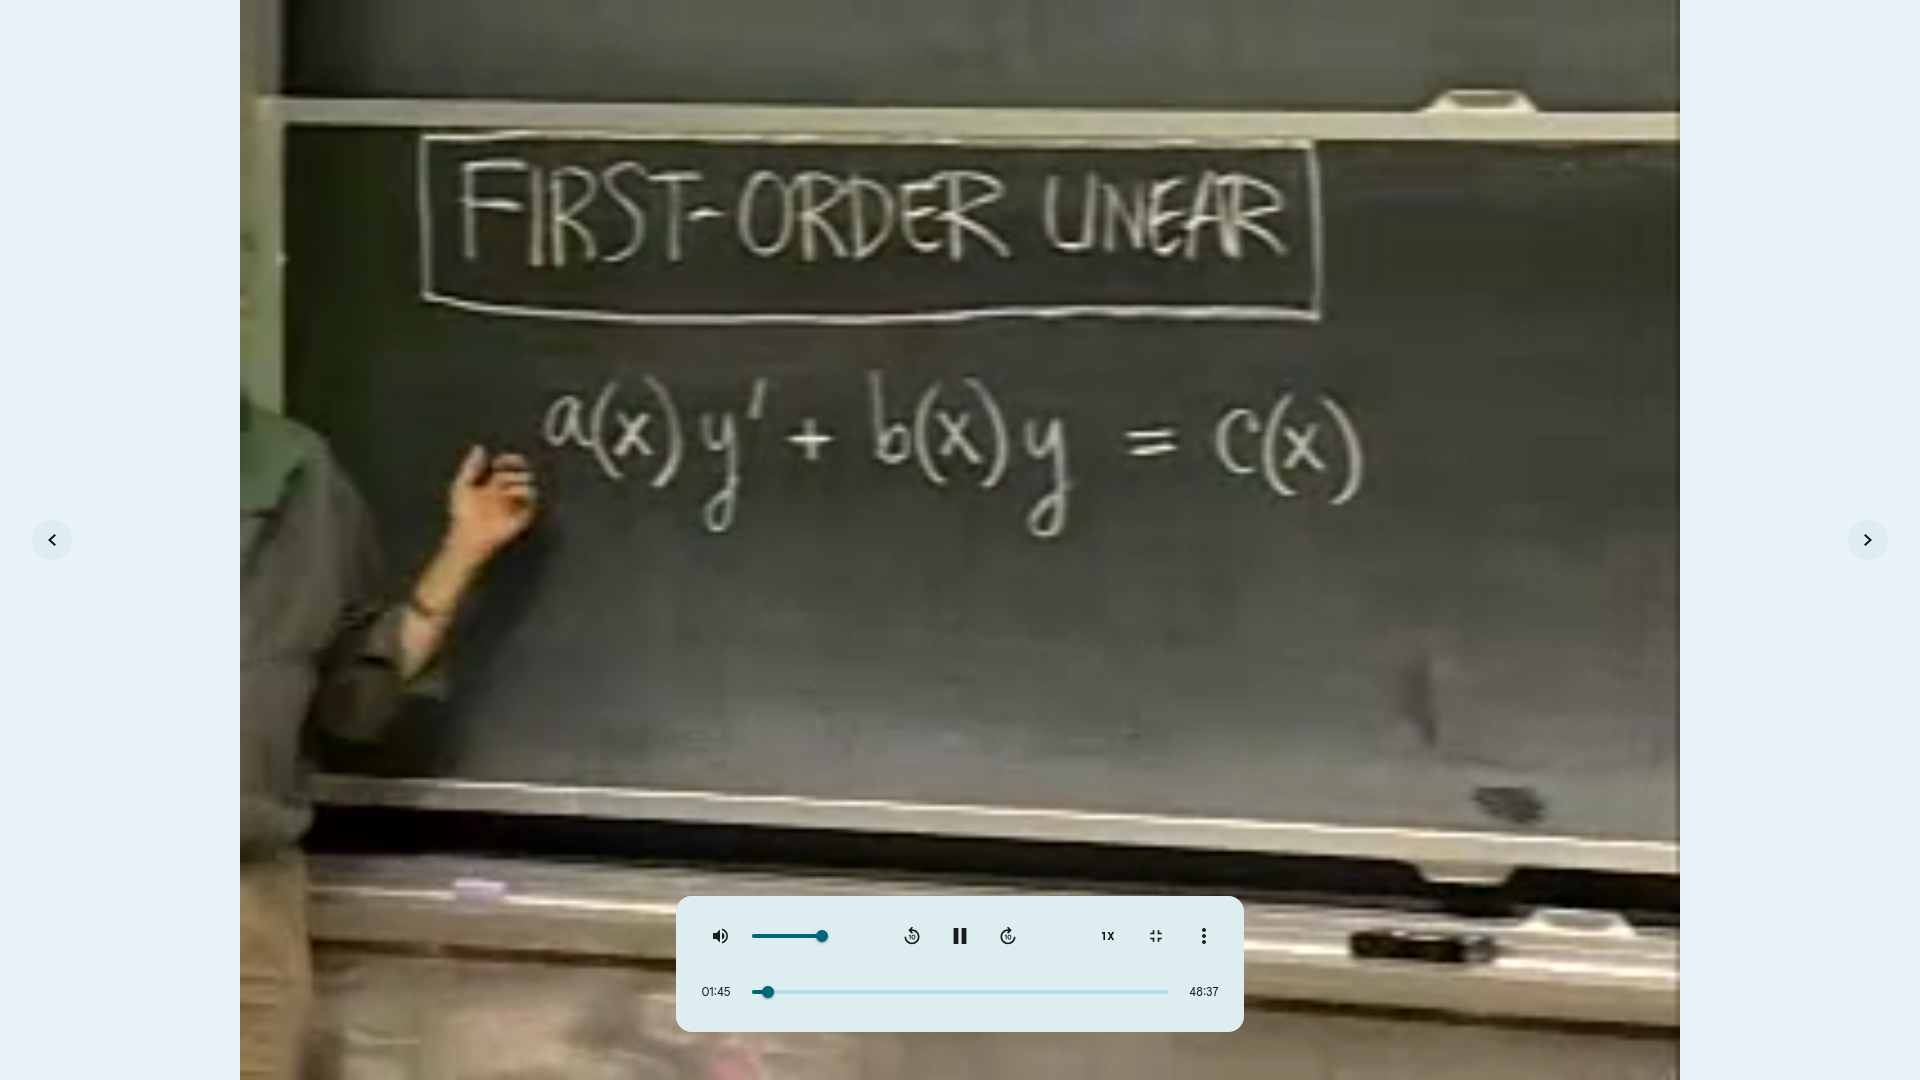 FIRST-ORDER LINEAR
a(x)y' + b(x)y = c(x)
10
10
1X
01:45
48:37